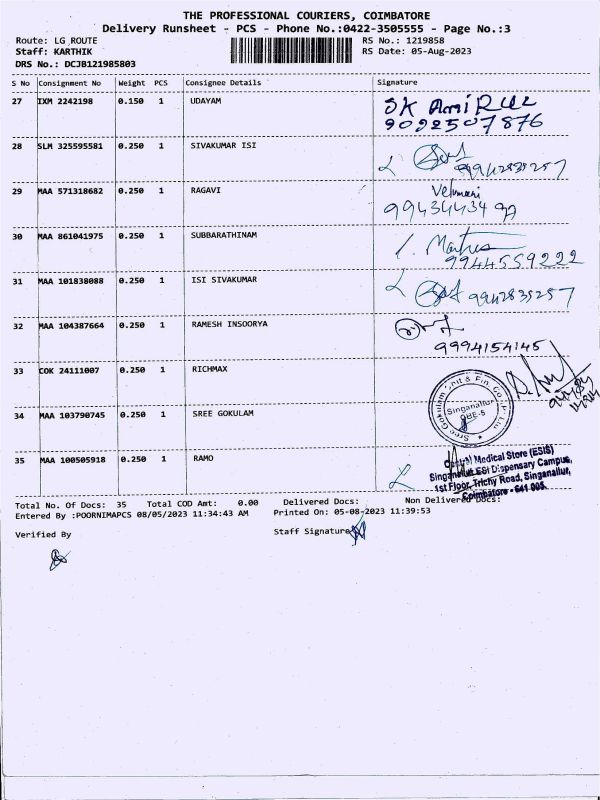 THE PROFESSIONAL COURIERS, COIMBATORE
Delivery Runsheet - PCS - Phone No.:0422-3505555 - Page No.:3
Route: LG ROUTE RS No.: 1219858
Staff: KARTHIK RS Date: 05-Aug-2023
DRS No.: DCJB121985803
S No Consignment No Weight PCS Consignee Details Signature
27 IXM 2242198 0.150 1 UDAYAM SK AmiRUL
9092507876
28 SLM 325595581 0.250 1 SIVAKUMAR ISI
9942835257
29 MAA 571318682 0.250 1 RAGAVI Velumani
9943443499
30 MAA 861041975 0.250 1 SUBBARATHINAM
9944559222
31 MAA 101838088 0.250 1 ISI SIVAKUMAR 9942835257
32 MAA 104387664 0.250 1 RAMESH INSOORYA
9994154145
33 COK 24111007 0.250 1 RICHMAX
Sree Gokulam Chit & Fin. Co. P. Ltd
Singanallur
CBE-5
34 MAA 103790745 0.250 1 SREE GOKULAM
35 MAA 100505918 0.250 1 RAMO
Central Medical Store (ESIS)
Singanallur ESI Dispensary Campus,
1st Floor, Trichy Road, Singanallur,
Coimbatore - 641 005.
Total No. Of Docs: 35 Total COD Amt: 0.00 Delivered Docs: Non Delivered Docs:
Entered By :POORNIMAPCS 08/05/2023 11:34:43 AM Printed On: 05-08-2023 11:39:53
Verified By Staff Signature